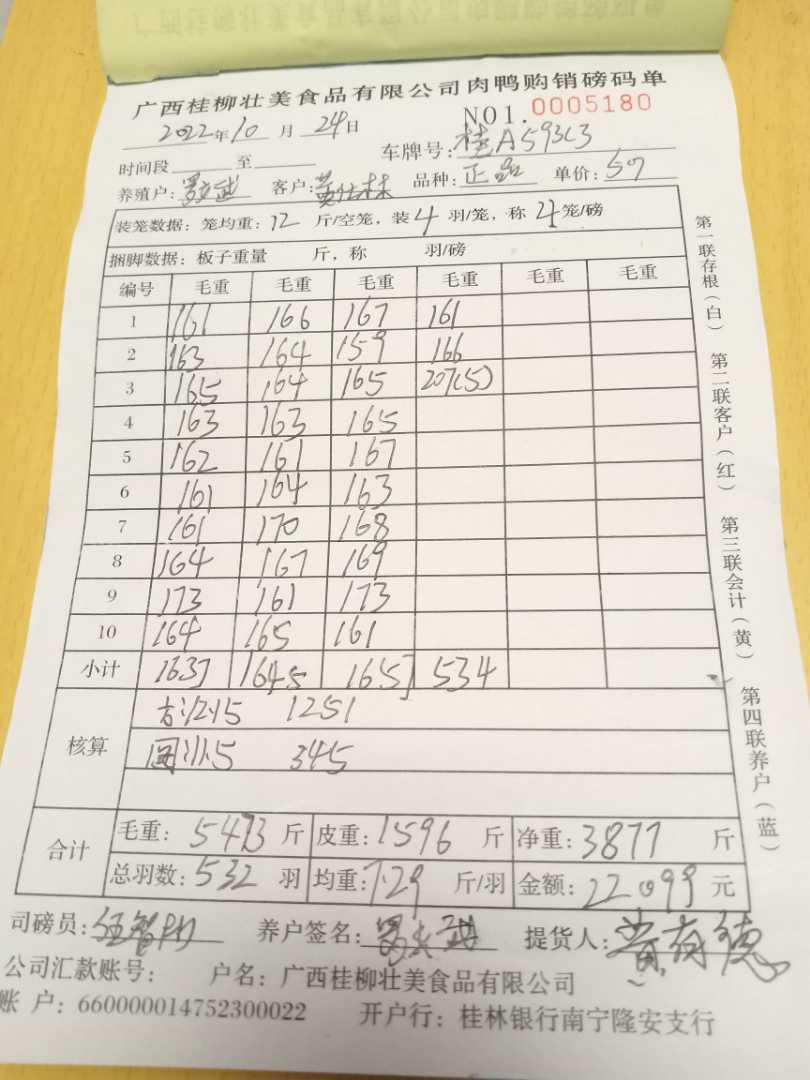 广西桂柳壮美食品有限公司肉鸭购销磅码单
NO1.0005180
2022年10月24日
车牌号:桂A593C3
时间段 至
养殖户: 客户:黄仕林 品种:正品 单价:57
装笼数据:笼均重:12斤/空笼,装4羽/笼,称4笼/磅
捆脚数据:板子重量 斤,称 羽/磅
编号 毛重 毛重 毛重 毛重 毛重 毛重
1 161 166 167 161
2 163 164 159 166
3 165 164 165 207(5)
4 163 163 165
5 162 161 167
6 161 164 163
7 161 170 168
8 164 167 169
9 173 161 173
10 164 165 161
小计 1637 1645 1657 534
核算
1251
345
合计
毛重:5473斤 皮重:1596斤 净重:3877斤
总羽数:532羽 均重:7.29斤/羽 金额:22099元
司磅员: 养户签名: 提货人:黄有德
公司汇款账号: 户名:广西桂柳壮美食品有限公司
账 户:660000014752300022 开户行:桂林银行南宁隆安支行
第一联存根(白) 第二联客户(红) 第三联会计(黄) 第四联养户(蓝)